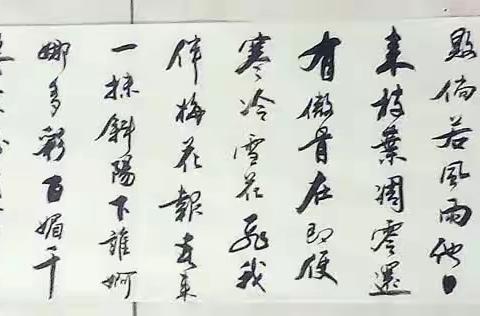 倘若風雨他日
來枝葉凋零還
有傲骨在即便
寒冷雪花飛我
伴梅花報春來
一抹斜陽下誰婀
娜多彩百媚千